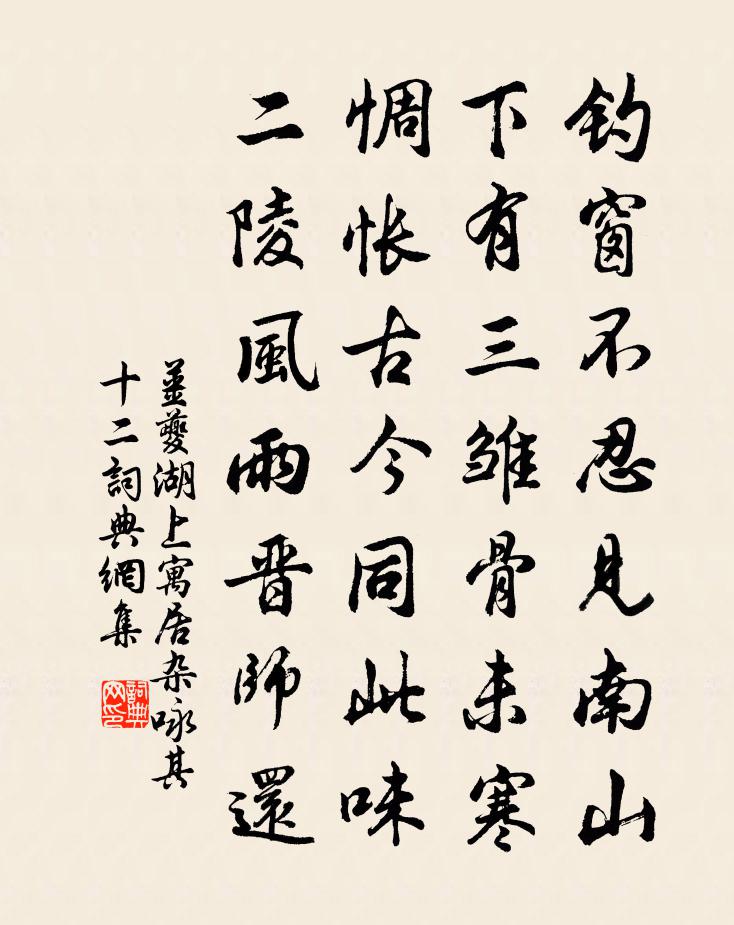 钓窗不忍見南山
下有三雏骨未寒
惆怅古今同此味
二陵風雨晋師還
姜夔湖上寓居杂咏其
十二詞典網集
詞典
网印